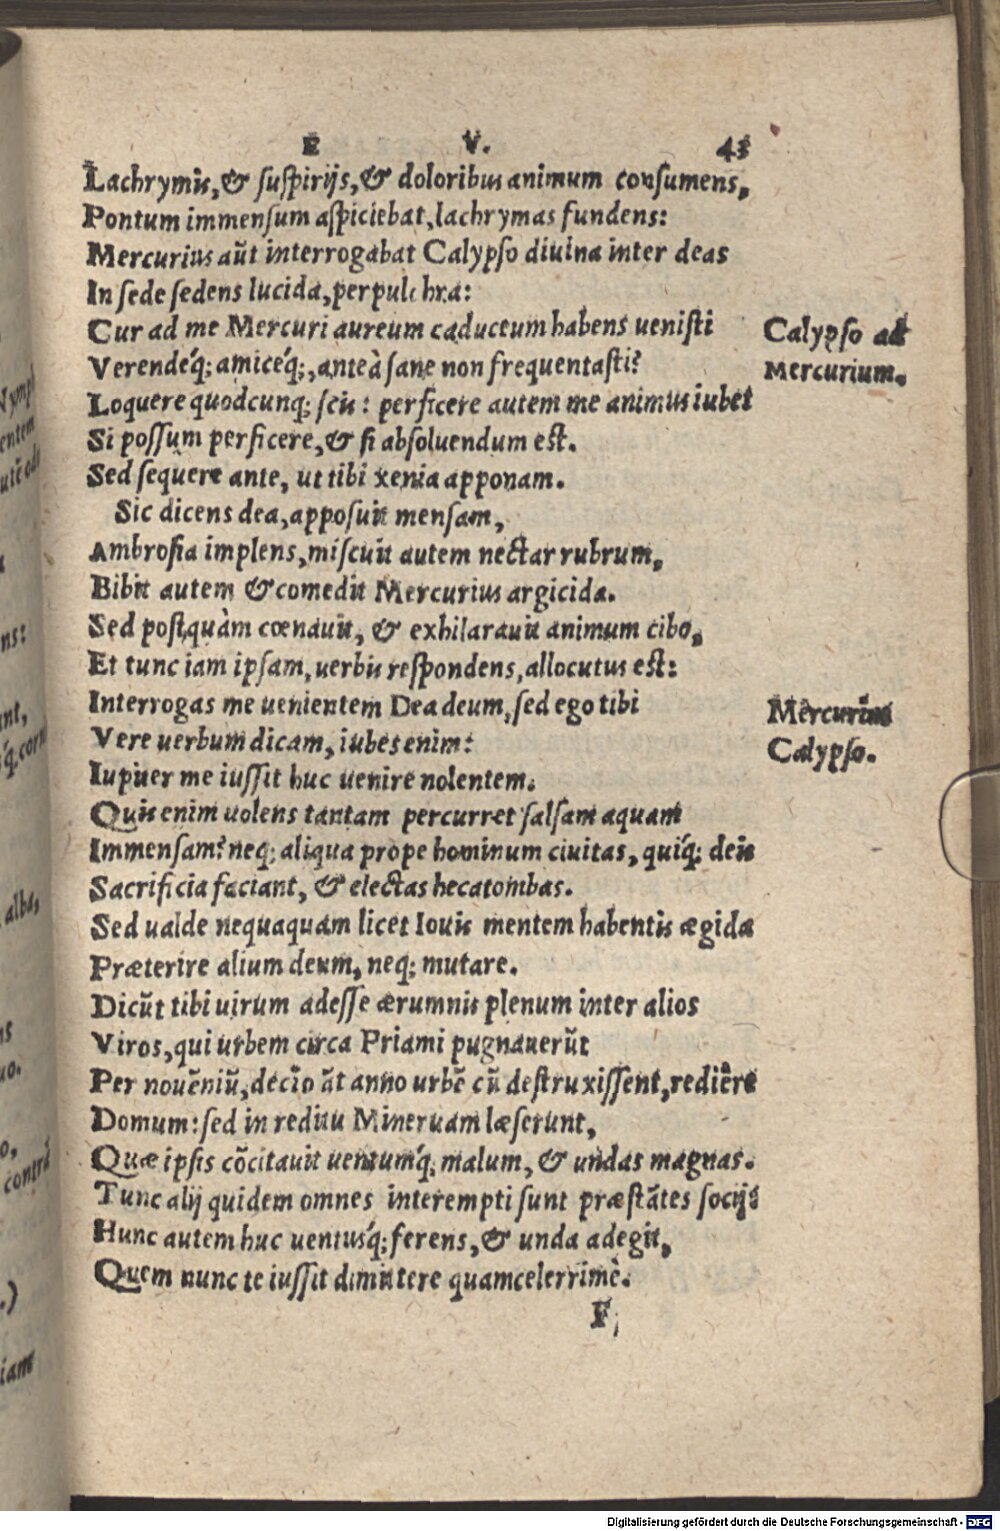 E V. 43
Lachrymis, & suspirijs, & doloribus animum consumens,
Pontum immensum aspiciebat, lachrymas fundens:
Mercurius aũt interrogabat Calypso diuina inter deas
In sede sedens lucida, perpulchra:
Cur ad me Mercuri aureum caduceum habens uenisti
Calypso ad
Verendéq; amicéq;, anteà sane non frequentasti?
Mercurium.
Loquere quodcunq; scis: perficere autem me animus iubet
Si possum perficere, & si absoluendum est.
Sed sequere ante, ut tibi xenia apponam.
Sic dicens dea, apposuit mensam,
Ambrosia implens, miscuit autem nectar rubrum,
Bibit autem & comedit Mercurius argicida.
Sed postquàm cœnauit, & exhilarauit animum cibo,
Et tunc iam ipsam, uerbis respondens, allocutus est:
Interrogas me uenientem Dea deum, sed ego tibi
Mercurius
Vere uerbum dicam, iubes enim:
Calypso.
Iupiter me iussit huc uenire nolentem.
Quis enim uolens tantam percurret salsam aquam
Immensam? neq; aliqua prope hominum ciuitas, quiq́; deis
Sacrificia faciant, & electas hecatombas.
Sed ualde nequaquam licet Iouis mentem habentis ægida
Præterire alium deum, neq; mutare.
Dicũt tibi uirum adesse ærumnis plenum inter alios
Viros, qui urbem circa Priami pugnauerũt
Per nouẽniũ, decĩo ãt anno urbẽ cũ destruxissent, rediẽre
Domum: sed in reditu Mineruam læserunt,
Quæ ipsis cõcitauit uentumq́; malum, & undas magnas.
Tunc alij quidem omnes interempti sunt præstãtes socij:
Hunc autem huc uentusq́; ferens, & unda adegit,
Quem nunc te iussit dimittere quamcelerrimè.
F
Digitalisierung gefördert durch die Deutsche Forschungsgemeinschaft - DFG